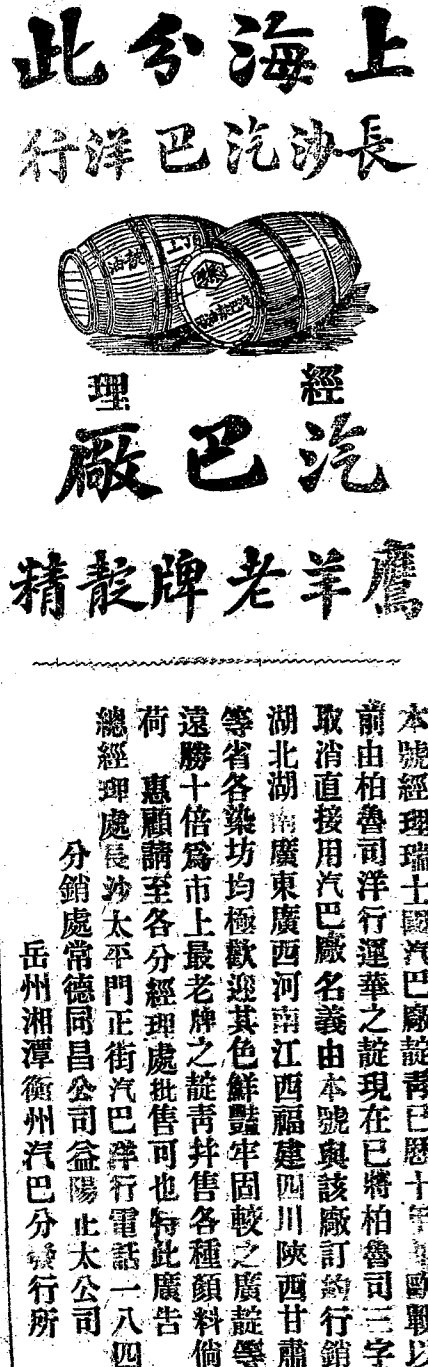 上海分此
長沙汽巴洋行
頂上
靛油
經理
汽巴廠
鷹羊老牌靛精
本號經理瑞士國汽巴廠靛靑已歷十年歐戰以
前由柏魯司洋行運華之靛現在已將柏魯司三字
取消直接用汽巴廠名義由本號與該廠訂約行銷
湖北湖南廣東廣西河南江西福建四川陝西甘肅
等省各染坊均極歡迎其色鮮豔牢固較之廣靛等
遠勝十倍爲市上最老牌之靛靑幷售各種顏料倘
荷　惠顧請至各分經理處批售可也特此廣告
總經理處長沙太平門正街汽巴洋行電話一八四
分銷處常德同昌公司益陽止太公司
岳州湘潭衡州汽巴分發行所